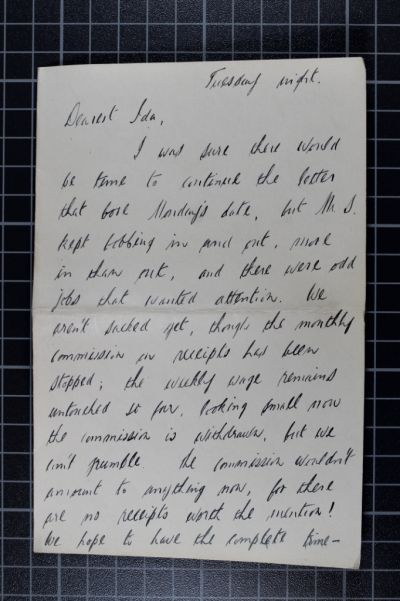 Tuesday night.
Dearest Ida,
I was sure there would
be time to continue the letter
that bore Monday's date, but Mr. S.
kept bobbing in and out, more
in than out, and there were odd
jobs that wanted attention. We
aren't sacked yet, though the monthly
commission on receipts has been
stopped; the weekly wage remains
untouched so far, looking small now
the commission is withdrawn, but we
can't grumble. The commission wouldn't
amount to anything now, for there
are no receipts worth the mention!
We hope to have the complete time-